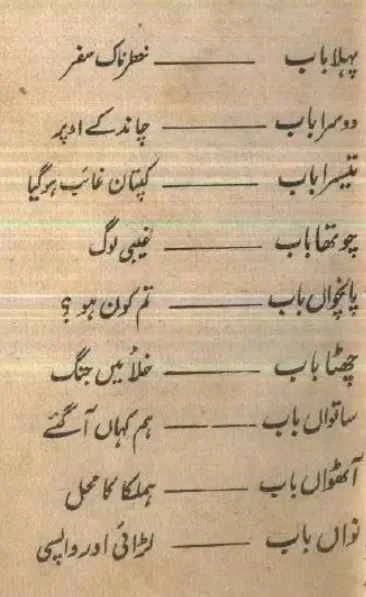 پہلا باب ——— خطرناک سفر
دوسرا باب ——— چاند کے اوپر
تیسرا باب ——— کپتان غائب ہوگیا
چوتھا باب ——— غیبی لوگ
پانچواں باب ——— تم کون ہو ؟
چھٹا باب ——— خلأ میں جنگ
ساتواں باب ——— ہم کہاں آ گئے
آٹھواں باب ——— ہملکا کا محل
نواں باب ——— لڑائی اور واپسی